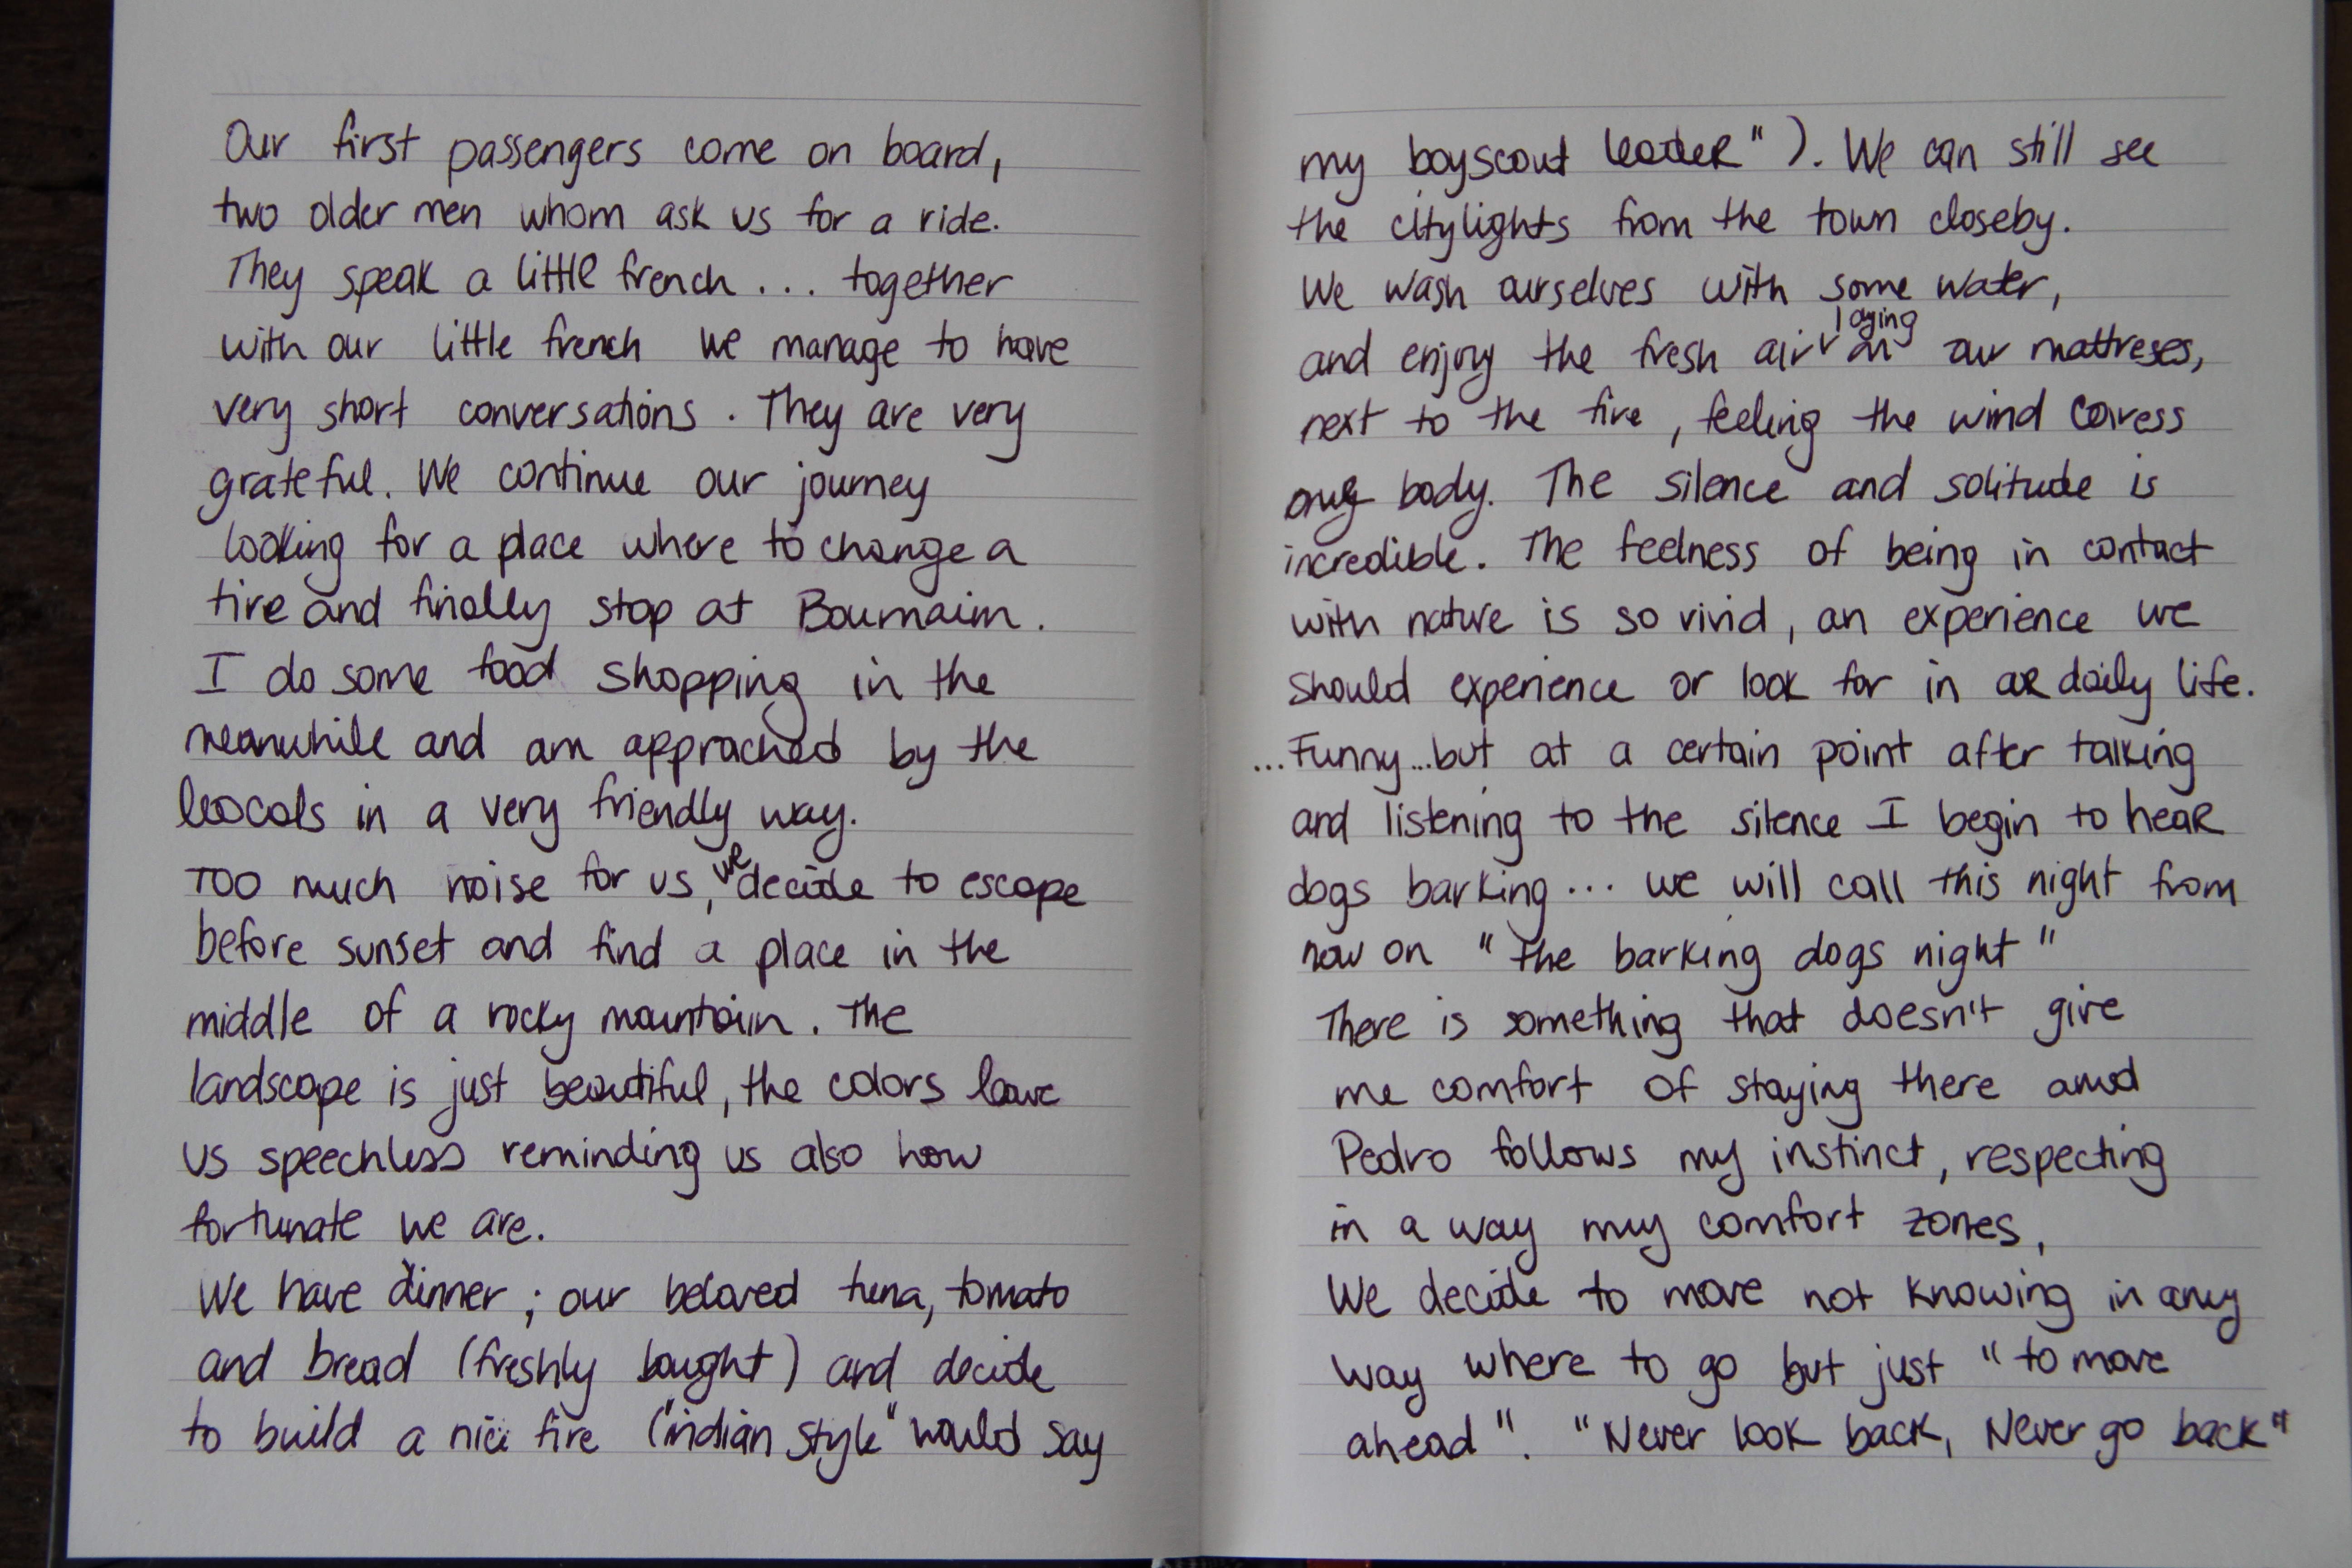 Our first passengers come on board,
two older men whom ask us for a ride.
They speak a little french... together
with our little french we manage to have
very short conversations. They are very
grateful. We continue our journey
looking for a place where to change a
tire and finally stop at Boumaim.
I do some food shopping in the
meanwhile and am apprached by the
loocals in a very friendly way.
Too much noise for us, we decide to escape
before sunset and find a place in the
middle of a rocky mountain. The
landscape is just beautiful, the colors leave
us speechless reminding us also how
fortunate we are.
We have dinner; our beloved tuna, tomato
and bread (freshly bought) and decide
to build a nice fire ("indian style" would say
my boyscout leader"). We can still see
the citylights from the town closeby.
We wash ourselves with some water,
and enjoy the fresh air laying on our mattreses,
next to the fire, feeling the wind caress
our body. The silence and solitude is
incredible. The feelness of being in contact
with nature is so vivid, an experience we
should experience or look for in our daily life.
...Funny...but at a certain point after talking
and listening to the silence I begin to hear
dogs barking... we will call this night from
now on "the barking dogs night"
There is something that doesn't give
me comfort of staying there and
Pedro follows my instinct, respecting
in a way my comfort zones,
We decide to move not knowing in any
way where to go but just "to move
ahead". "Never look back, Never go back"